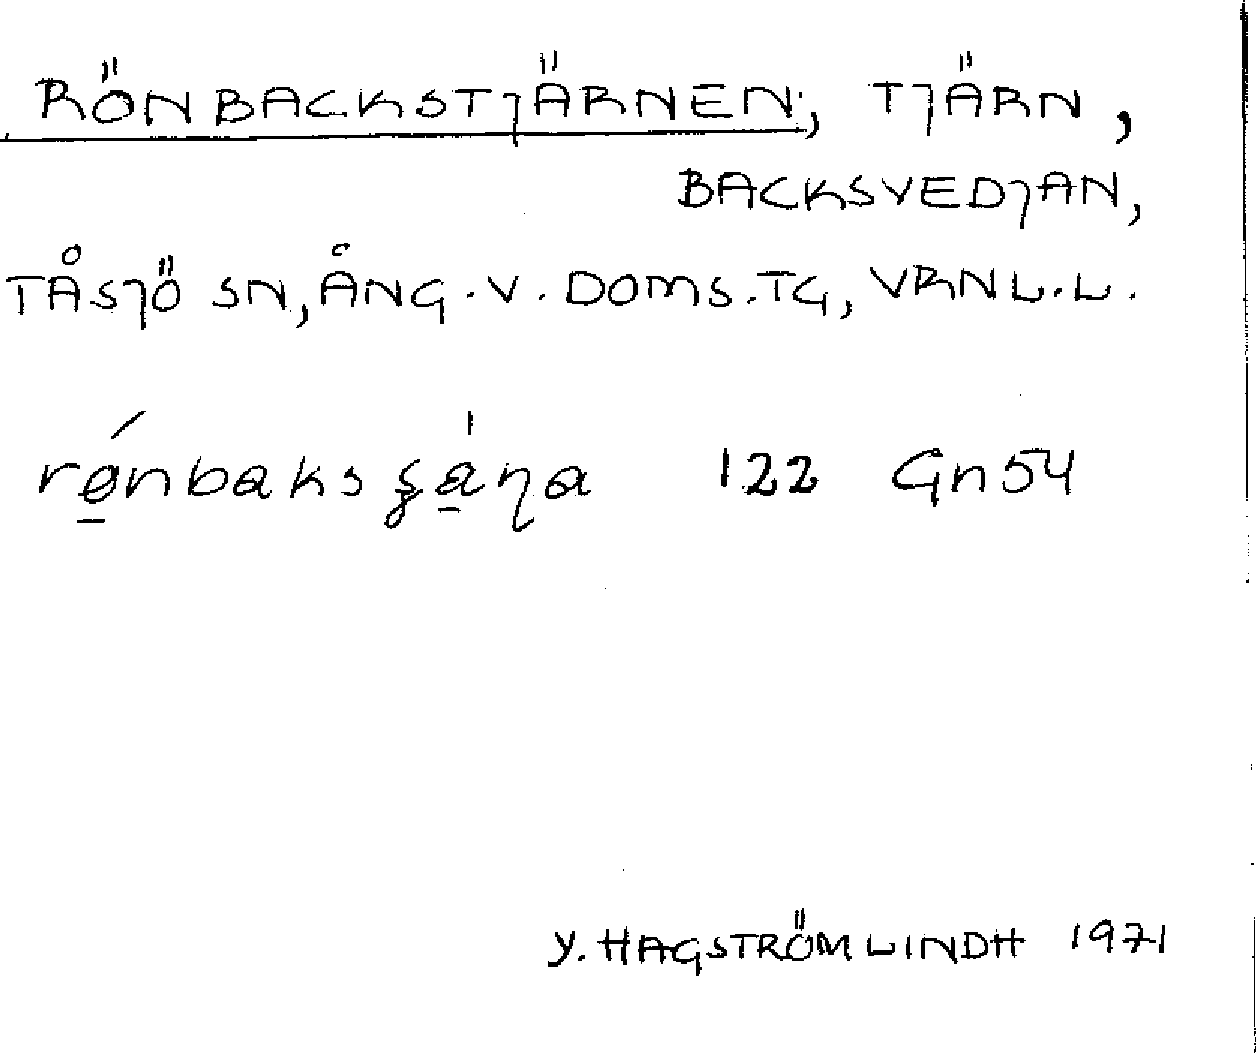 RÖNBACKSTJÄRNEN, TJÄRN,
BACKSVEDJAN,
TÅSJÖ SN, ÅNG.V. DOMS.TG, VRNL.L.
rǿ̠nbaksʂa̠̍ɳa 122 Gn54
Y. HAGSTRÖM LINDH 1971